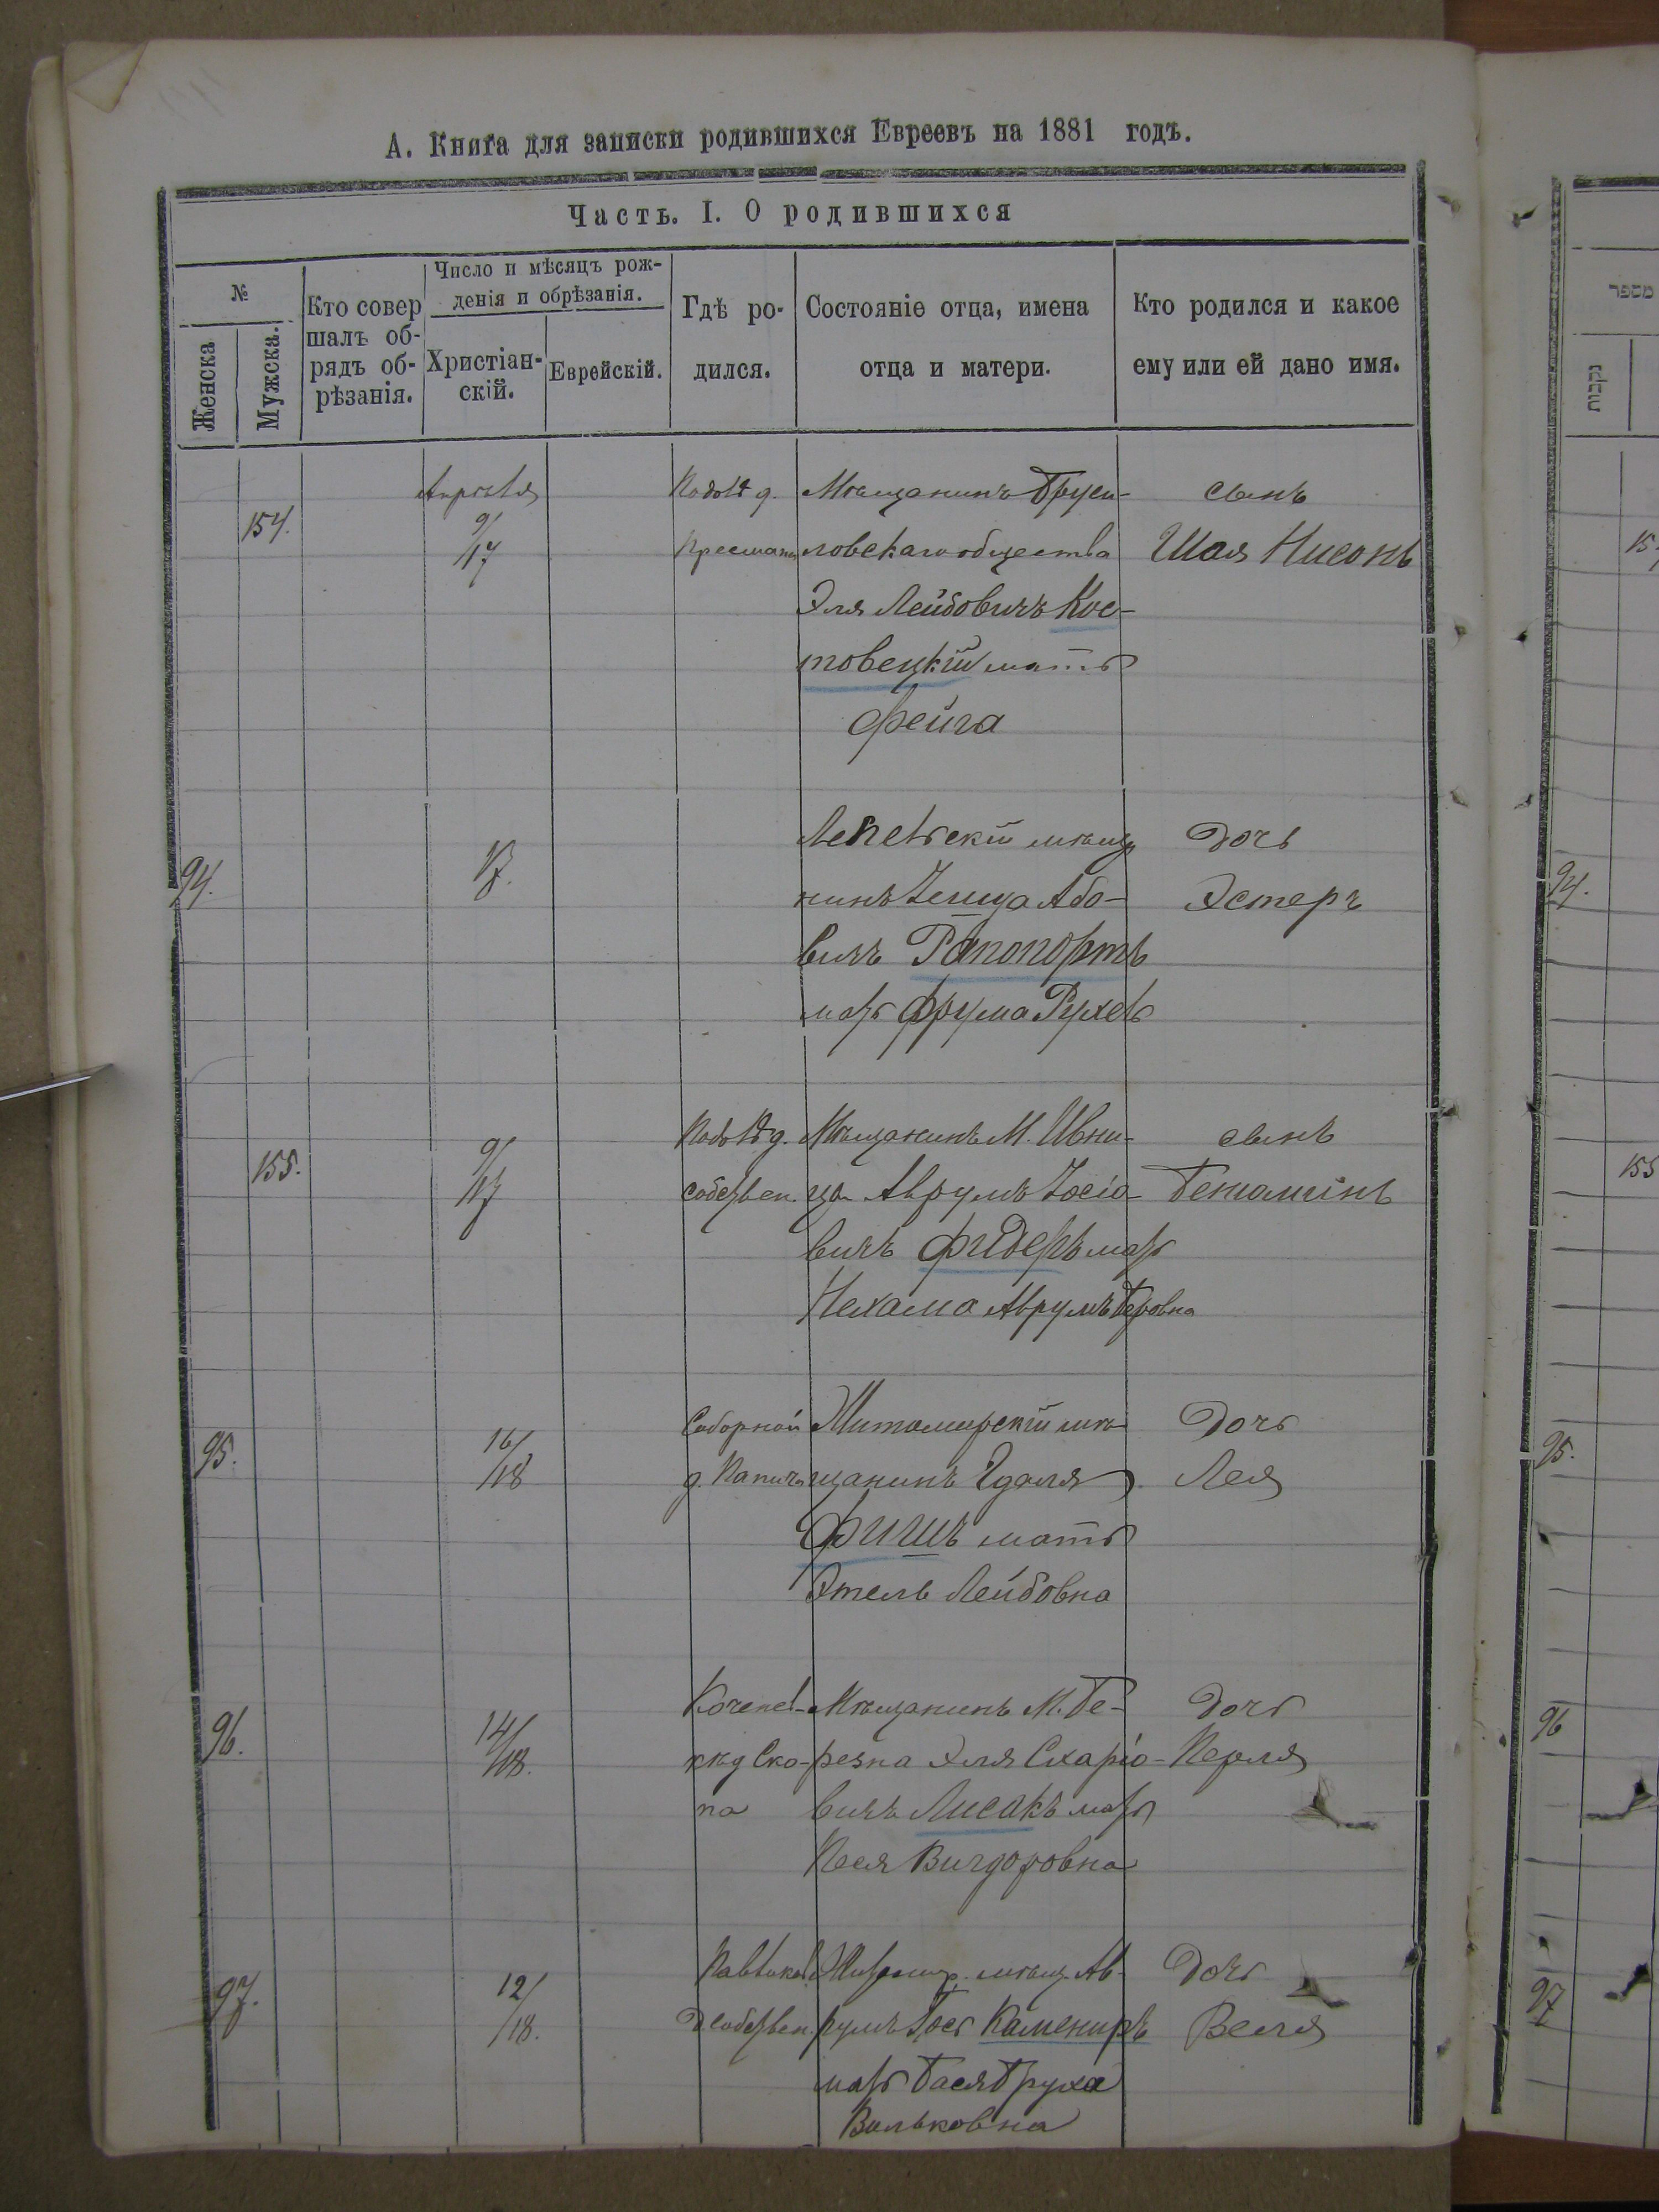 А. Книга для записки родившихся Евреевъ на 1881 годъ.
Часть. I. О родившихся
№
Женска
Мужска.
Кто совер
шалъ об-
рядъ об-
рѣзанія.
Число и мѣсяцъ рож-
денія и обрѣзанія.
Христіан-
скій.
Еврейскій.
Гдѣ ро-
дился.
Состояніе отца, имена
отца и матери.
Кто родился и какое
ему или ей дано имя.
154.
Апрѣля
9/17
д.
Мѣщанинъ Бруси-
ловскаго общества
Эля Лейбовичъ Кос-
товецкій мать
Фейга
сынъ
Шая Нисонъ
94.
17.
мѣща
нинъ Або-
вичъ Рапопортъ
мать Фрума Рухель
Дочь
Эстеръ
155.
9/17
д.
собствен.
Мѣщанинъ М. Ивни-
ца Аврумъ Іосіо-
вичъ Фидеръ мать
Нехама Аврумъ Беровна
сынъ
Беніаминъ
95.
16/18
Соборной
д.
Житомирскій мѣ-
щанинъ Гдаля
Фишъ мать
Этель Лейбовна
Дочь
Лея
96.
14/18.
д Ско-
па
Мѣщанинъ М. Бе-
резна Эля Схаріо-
вичъ Лисакъ мать
Песя Вигдоровна
Дочь
Перля
97.
12/18.
Д собствен.
Житомир. мѣщ. Ав-
румъ Іось Камениръ
мать Бася Бруха
Вольковна
Дочь
Велля
מספר
נקבות
94.
155
95.
96
97